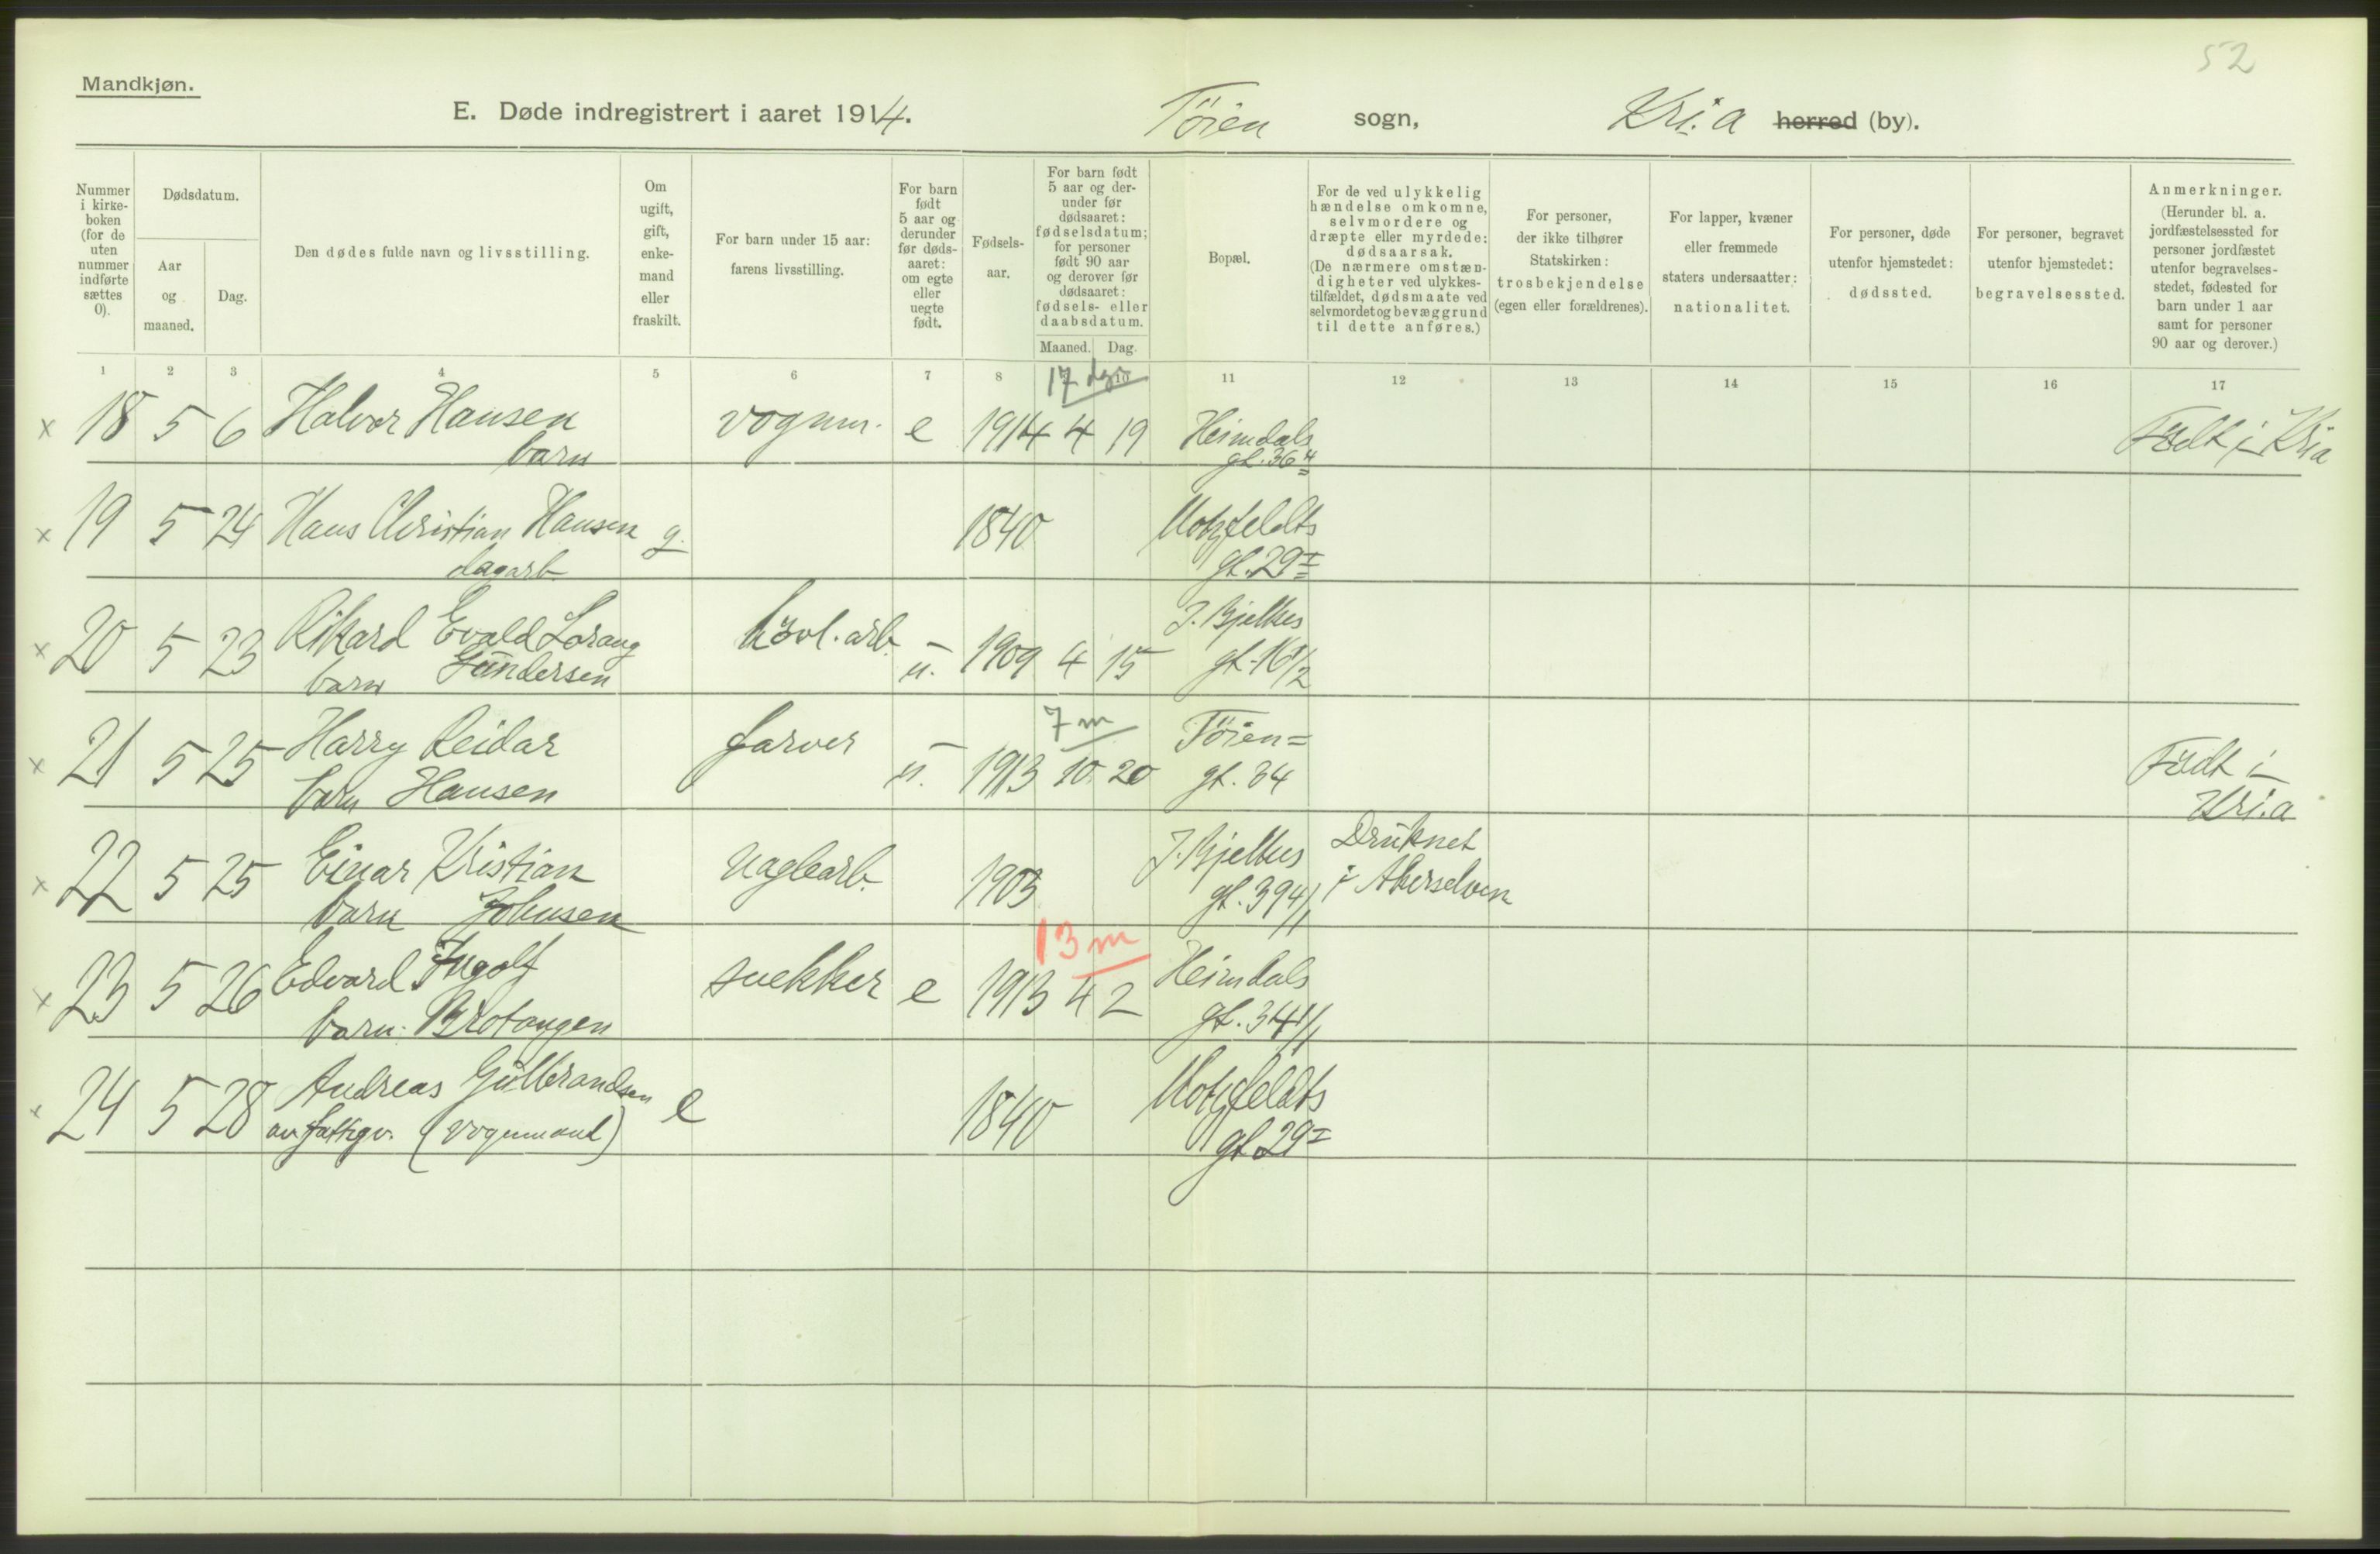 52
Mandkjøn.
E. Døde indregistrert i aaret 1914. Töien sogn, Kri.a herred (by).
Nummer i kirke-boken (for de uten nummer indførte sættes 0).
Dødsdatum.
Aar og maaned.
Dag.
Den dødes fulde navn og livsstilling.
Om ugift, gift, enke-mand eller fraskilt.
For barn under 15 aar: farens livsstilling.
For barn født 5 aar og derunder før døds-aaret: om egte eller uegte født.
Fødsels-aar.
For barn født 5 aar og der-under før dødsaaret: fødselsdatum; for personer født 90 aar og derover før dødsaaret: fødsels- eller daabsdatum.
Maaned. Dag.
Bopæl.
For de ved ulykkelig hændelse omkomne, selvmordere og dræpte eller myrdede: dødsaarsak. (De nærmere omstæn-digheter ved ulykkes-tilfældet, dødsmaate ved selvmordet og bevæggrund til dette anføres.)
For personer, der ikke tilhører Statskirken: trosbekjendelse (egen eller forældrenes).
For lapper, kvæner eller fremmede staters undersaatter: nationalitet.
For personer, døde utenfor hjemstedet: dødssted.
For personer, begravet utenfor hjemstedet: begravelsessted.
Anmerkninger. (Herunder bl. a. jordfæstelsessted for personer jordfæstet utenfor begravelses-stedet, fødested for barn under 1 aar samt for personer 90 aar og derover.)
1 2 3 4 5 6 7 8 10 11 12 13 14 15 16 17
17 dgr
x 18 5 6 Halvor Hansen vognm. e 1914 4 19 Heimdals Født i Kria
barn gt. 36 4
x 19 5 24 Hans Christian Hansen g. 1840 Motzfeldts
dagarb. gt. 29 I
x 20 5 23 Rikard Evald Lorang høvl.arb. u. 1909 4 15 J. Bjelkes
barn Gundersen gt. 16 1/2
7 m
x 21 5 25 Harry Reidar farver u. 1913 10. 20 Töien= Født i
barn Hansen gt. 34 Kri.a
x 22 5 25 Einar Kristian naglearb. 1903 J. Bjelkes Druknet
barn Johnsen gt. 394/1 i Akerselven
13 m
x 23 5 26 Edvard Ingolf snekker e 1913 4 2 Heimdals
barn. Brotangen gt. 341/1
x 24 5 28 Andreas Gulbrandsen e 1840 Motzfeldts
av fattigv. (vognmand) gt 29 I